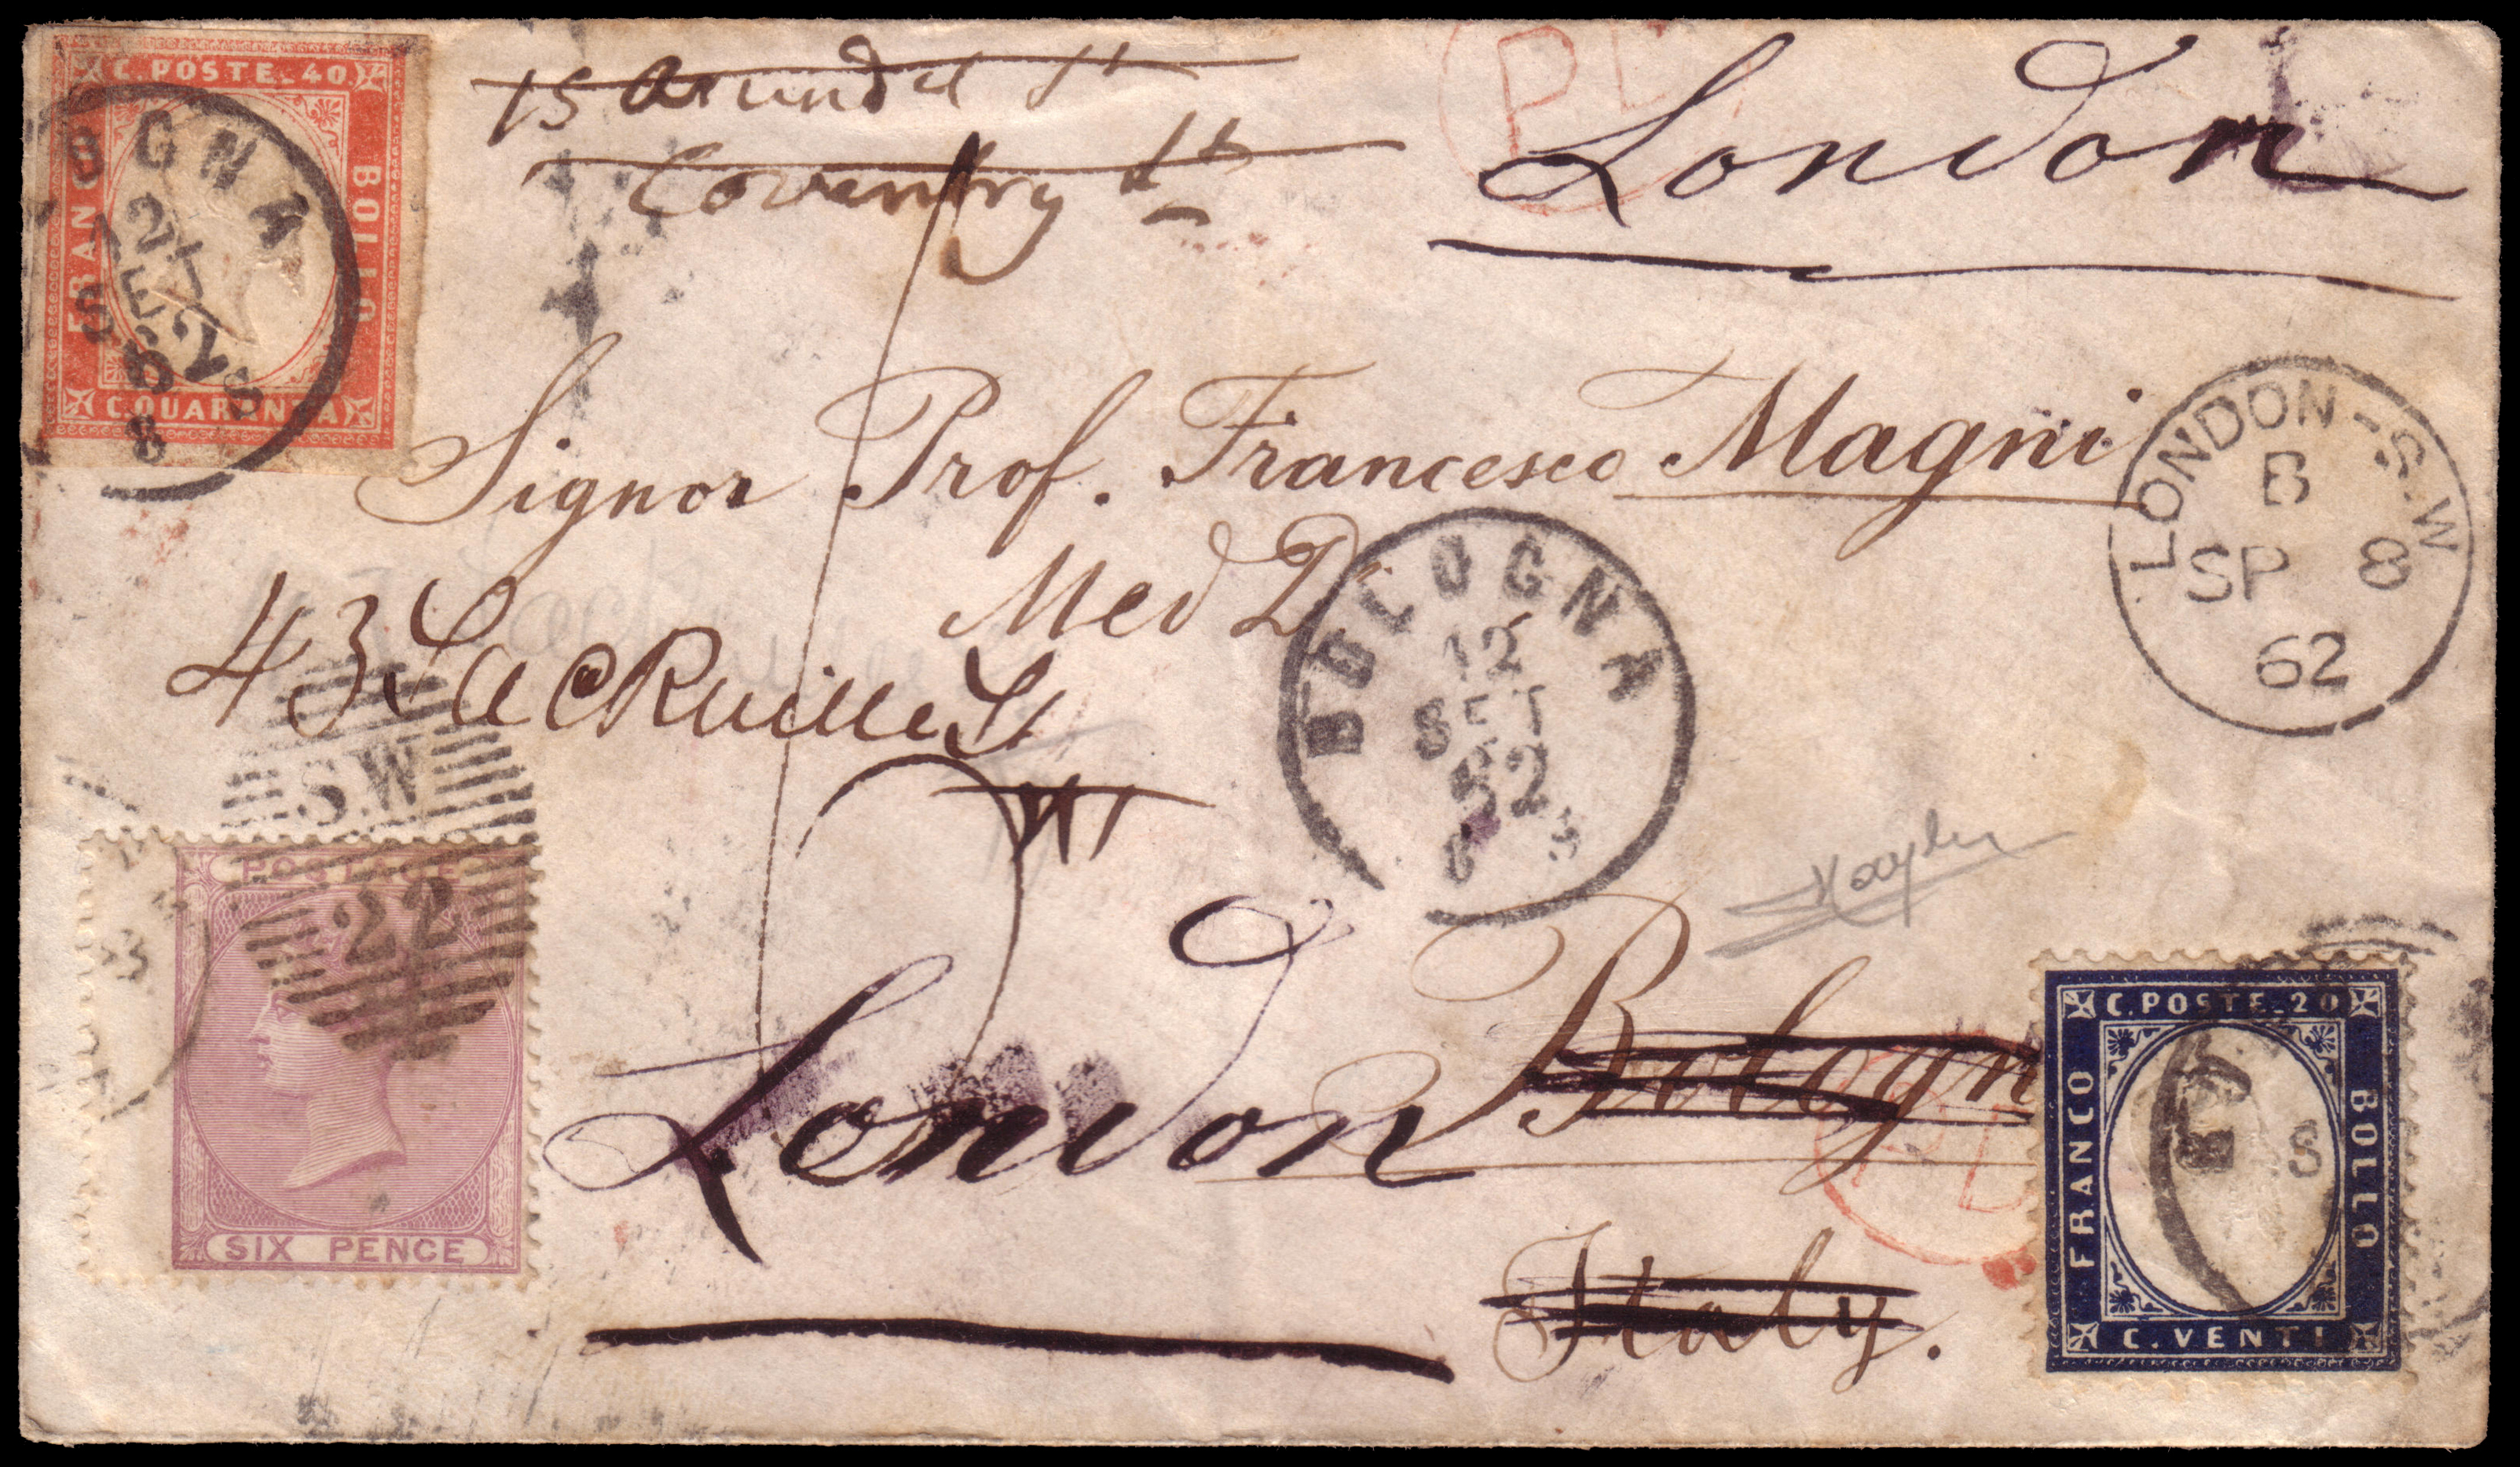 C. POSTE. 40
FRANCO
BOLLO
C. QUARANTA
OGNA
12
SET
62
8 S
15 Arundel St
Coventry St
London
PD
Signor Prof. Francesco Magni
Med Dr
43 Sackville St
LONDON-S.W
B
SP 8
62
BOLOGNA
12
SET
62
8 S
S.W
22
POSTAGE
SIX PENCE
London
Bologn
Italy.
PD
C. POSTE. 20
FRANCO
BOLLO
C. VENTI
B
S